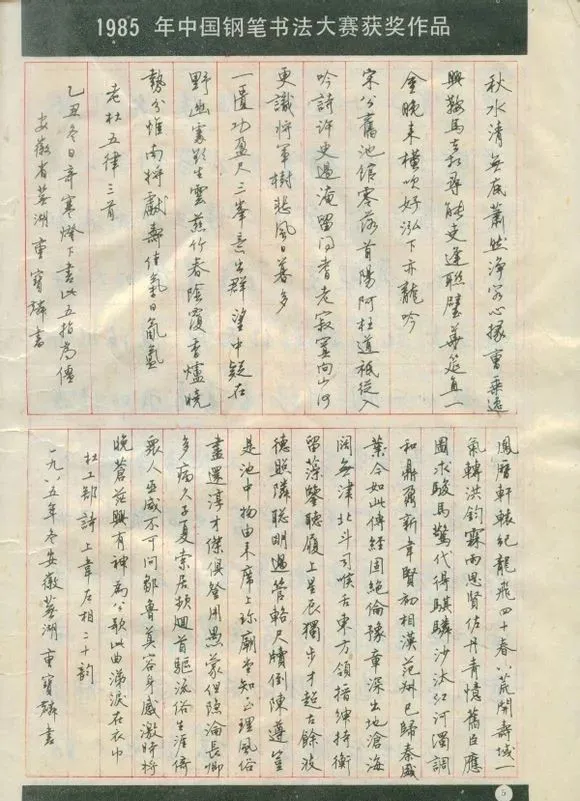 1985 年中国钢笔书法大赛获奖作品
秋水清無底蕭然淨客心掾曹乘逸
興鞍馬去相尋能吏逢聯璧華筵直一
金晚來橫吹好泓下亦龍吟
宋公舊池館零落首陽阿枉道祇從入
吟詩許更過淹留問耆老寂寞向山河
更識將軍樹悲風日暮多
一匱功盈尺三峯意出群望中疑在
野幽處欲生雲慈竹春陰覆香爐曉
勢分惟南將獻壽佳氣日氤氳
老杜五律三首
乙丑冬日奇寒燈下書此五指為僵
安徽省蕪湖寶書
鳳曆軒轅紀龍飛四十春八荒開壽域一
氣轉洪鈞霖雨思賢佐丹青憶舊臣應
圖求駿馬驚代得騏驎沙汰江河濁調
和鼎鼐新韋賢初相漢范叔已歸秦盛
業今如此傳經固絕倫豫章深出地滄海
闊無津北斗司喉舌東方領搢紳持衡
留藻鑒聽履上星辰獨步才超古餘波
德照鄰聰明過管輅尺牘倒陳遵豈
是池中物由來席上珍廟堂知至理風俗
盡還淳才傑俱登用愚蒙但隱淪長卿
多病久子夏索居頻迴首驅流俗生涯似
眾人巫咸不可問鄒魯莫容身感激時將
晚蒼茫興有神為公歌此曲涕淚在衣巾
杜工部詩上韋左相二十韻
一九八五年冬安徽蕪湖寶書
5